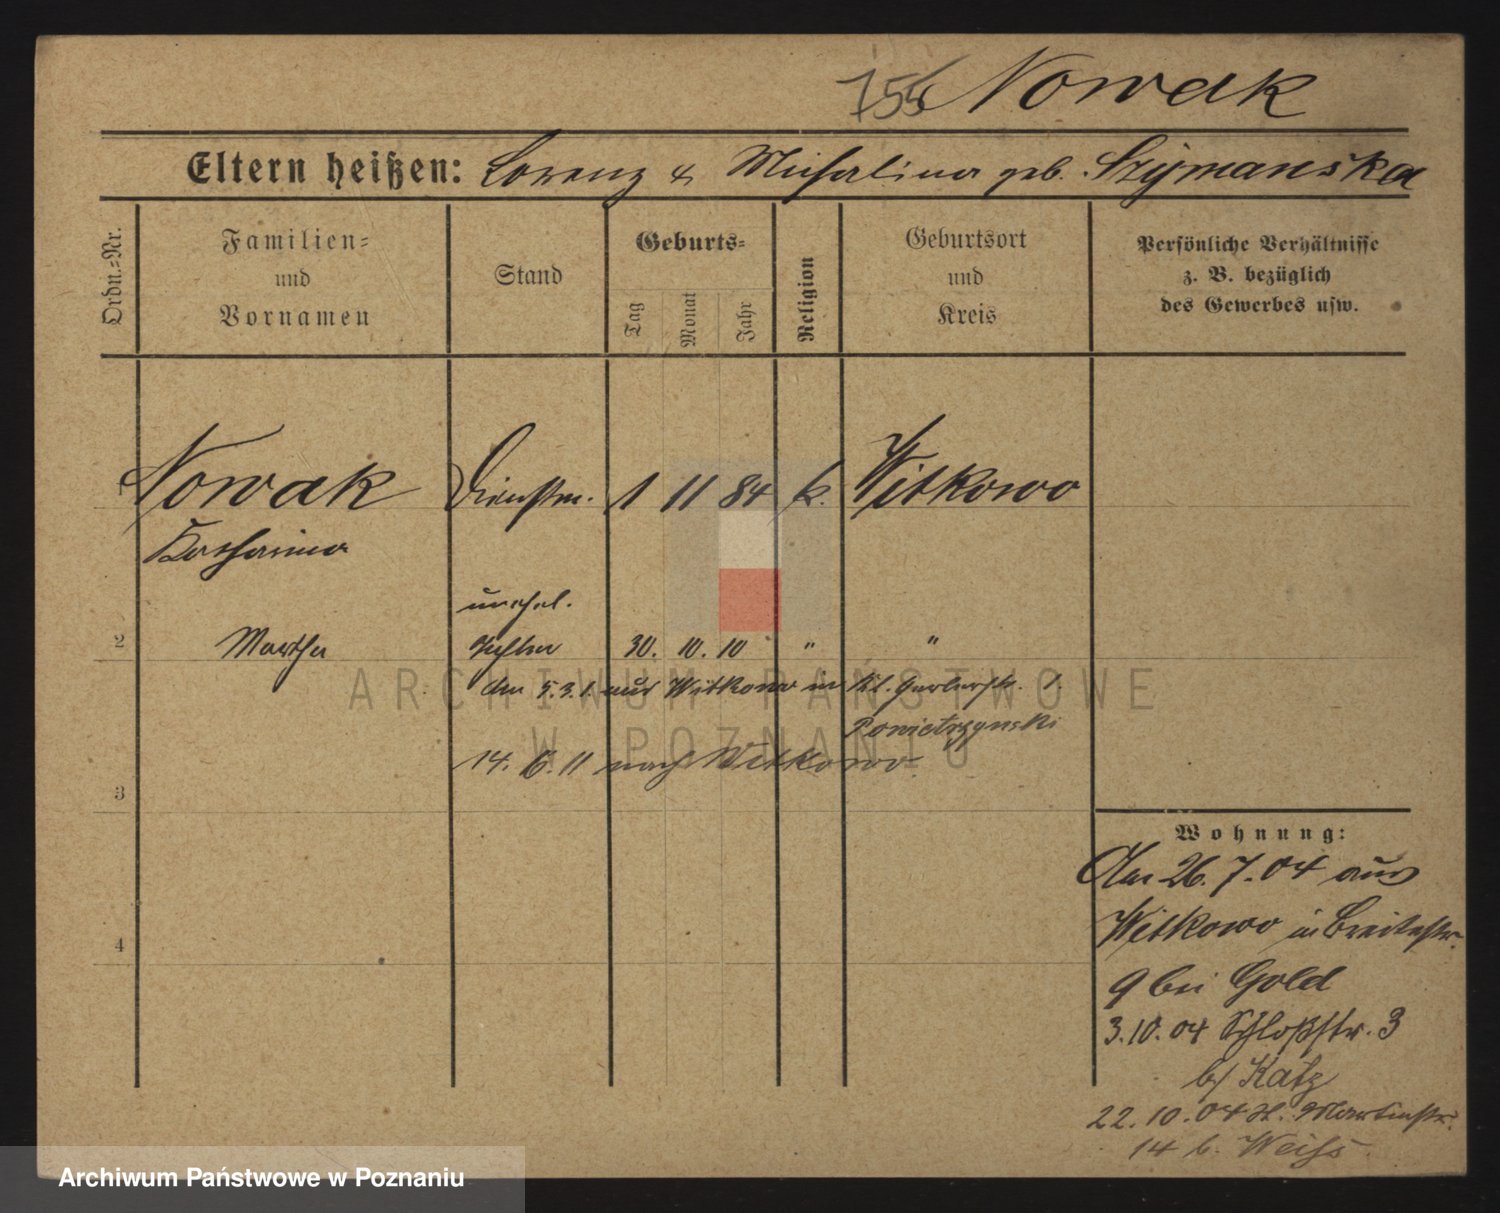 755 Nowak
Eltern heißen: Lorenz & Michalina geb. Szymanska
Ordn.=Nr.
Familien=
und
Vornamen
Stand
Geburts=
Tag
Monat
Jahr
Religion
Geburtsort
und
Kreis
Persönliche Verhältnisse
z. B. bezüglich
des Gewerbes usw.
1 Nowak Dienstm. 1 11 84 k. Witkowo
Katharina
unehel.
2 Martha Tochter 30. 10. 10 " "
den 5.3.1. aus Witkowo in Kl. Gerberstr. 1.
Powietrzynski
14. 6. 11 nach Witkowo.
3
4
Wohnung:
Am 26. 7. 04 aus
Witkowo in Breitestr.
9 bei Gold
3.10.04 Schloßstr. 3
b/ Katz
22.10.04 St. Martinstr.
14 b. Weiss
ARCHIWUM PAŃSTWOWE
W POZNANIU
Archiwum Państwowe w Poznaniu